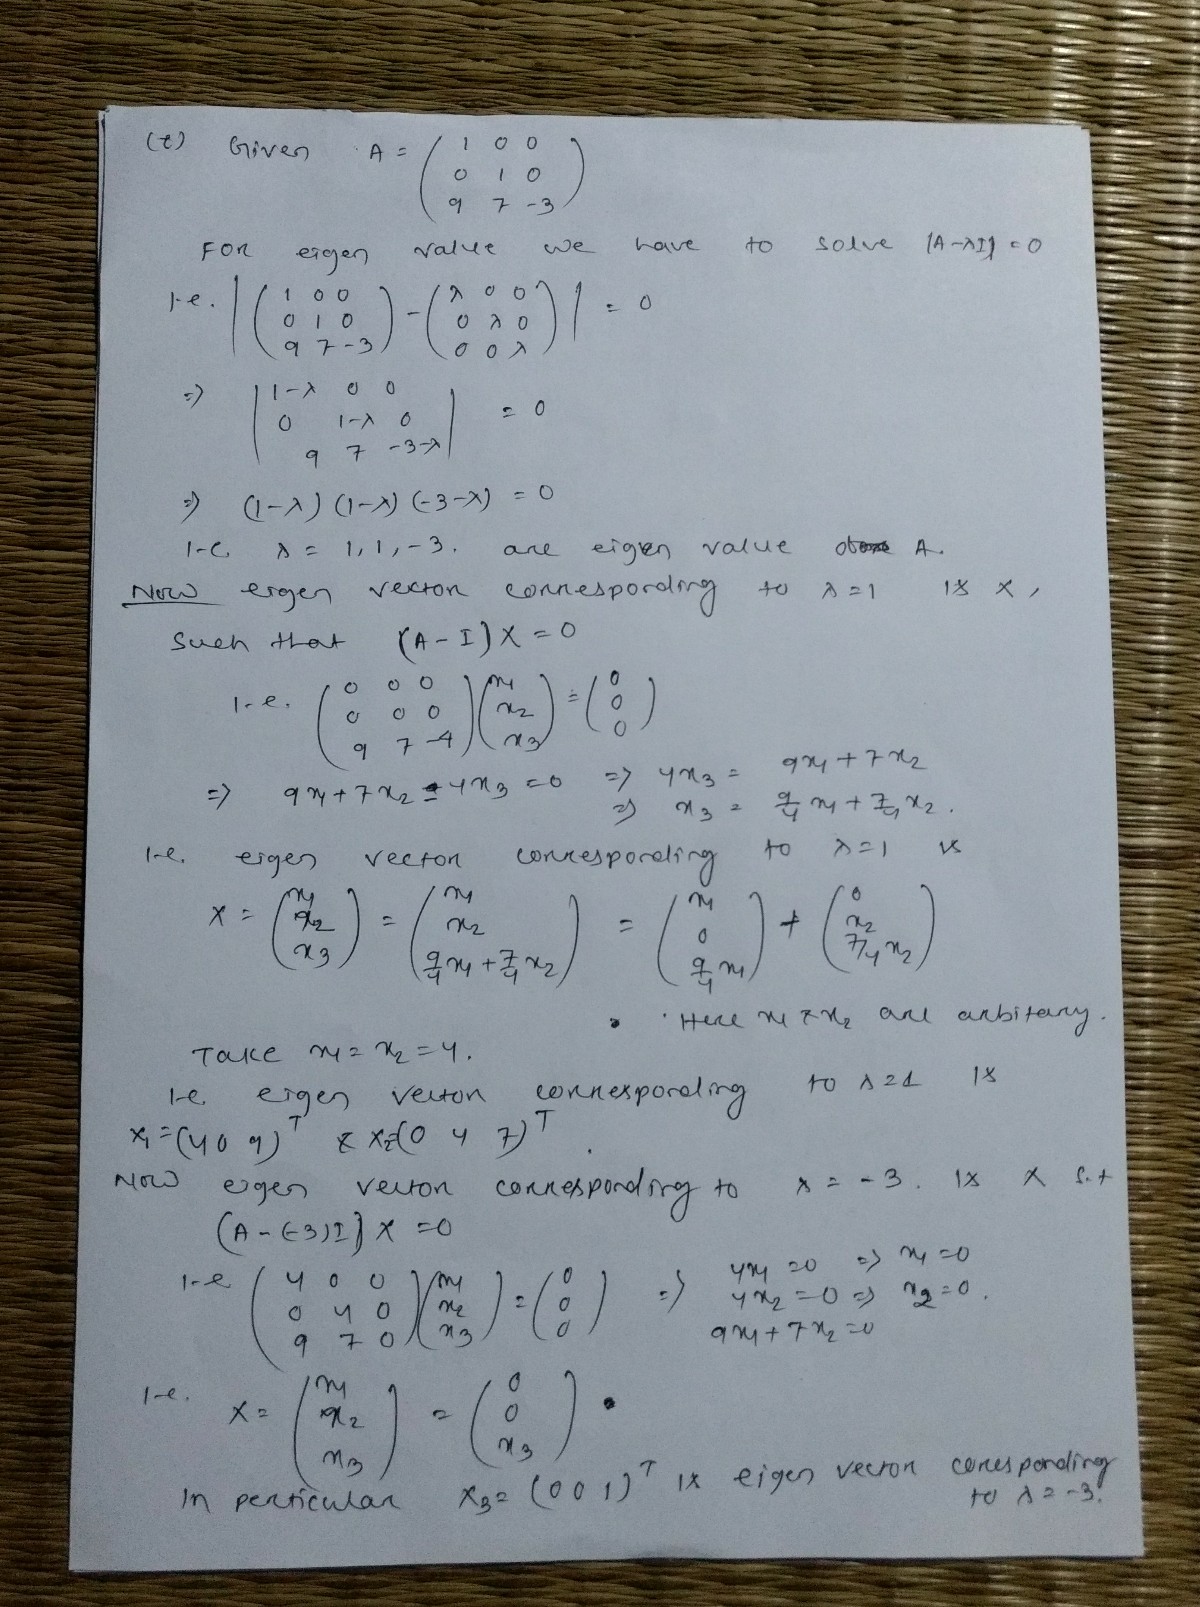 (t) Given A = ( 1 0 0
0 1 0
9 7 -3 )
For eigen value we have to solve |A-λI| = 0
i.e. | ( 1 0 0
0 1 0
9 7 -3 ) - ( λ 0 0
0 λ 0
0 0 λ ) | = 0
=> | 1-λ 0 0
0 1-λ 0
9 7 -3-λ | = 0
=> (1-λ) (1-λ) (-3-λ) = 0
i.e. λ = 1, 1, -3. are eigen value A.
Now eigen vector corresponding to λ=1 is X,
Such that (A-I)X = 0
i.e. ( 0 0 0
0 0 0
9 7 -4 ) ( x1
x2
x3 ) = ( 0
0
0 )
=> 9x1 + 7x2 - 4x3 = 0 => 4x3 = 9x1 + 7x2
=> x3 = 9/4 x1 + 7/4 x2.
i.e. eigen vector corresponding to λ=1 is
X = ( x1
x2
x3 ) = ( x1
x2
9/4 x1 + 7/4 x2 ) = ( x1
0
9/4 x1 ) + ( 0
x2
7/4 x2 )
Here x1 & x2 are arbitary.
Take x1 = x2 = 4.
i.e. eigen vector corresponding to λ=1 is
X1 = (4 0 9)^T & X2 = (0 4 7)^T.
Now eigen vector corresponding to λ = -3. is X s.t
(A-(-3)I) X = 0
i.e ( 4 0 0
0 4 0
9 7 0 ) ( x1
x2
x3 ) = ( 0
0
0 ) => 4x1 = 0 => x1 = 0
4x2 = 0 => x2 = 0.
9x1 + 7x2 = 0
i.e. X = ( x1
x2
x3 ) = ( 0
0
x3 ).
In perticular X3 = (0 0 1)^T is eigen vector corresponding
to λ = -3.